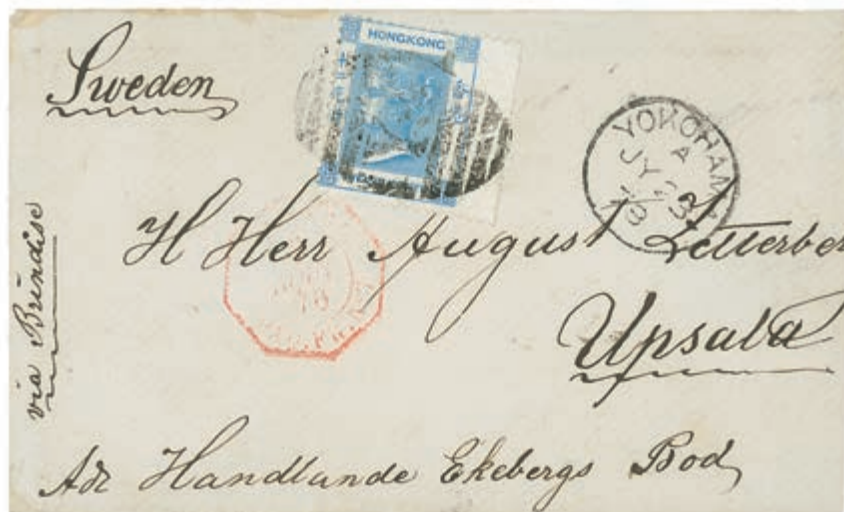 Sweden
HONGKONG
YOKOHAMA
A
JY 23
via Brindise
H Herr August Zetterber
Upsala
Adr Handlande Ekebergs Bod